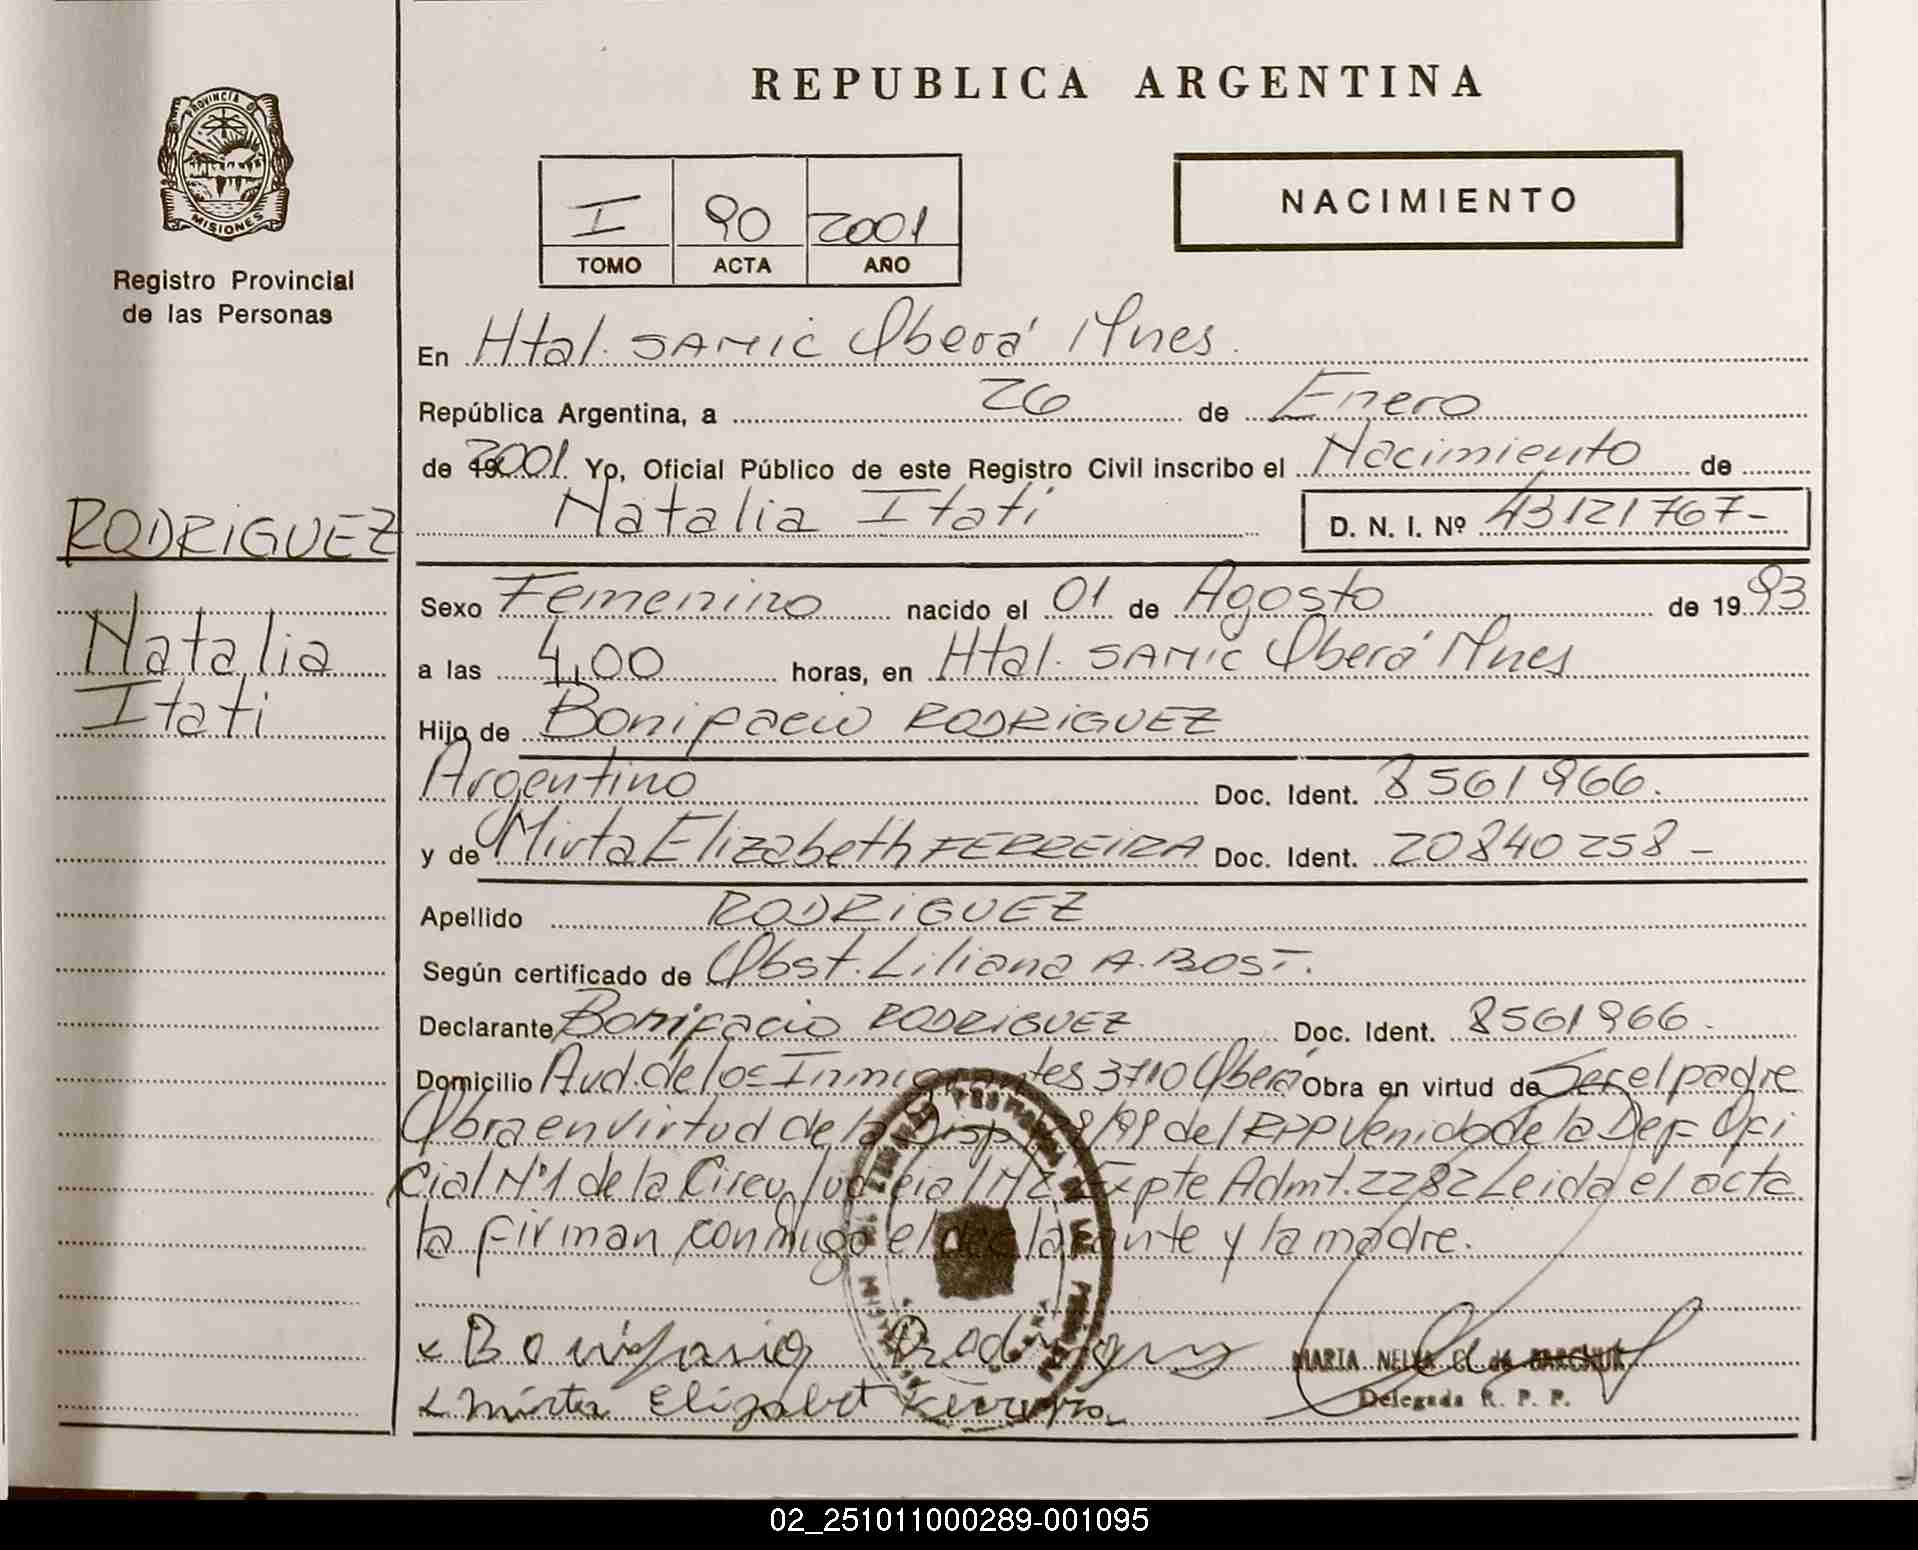 REPUBLICA ARGENTINA
PROVINCIA DE
MISIONES
Registro Provincial
de las Personas
I 90 2001
TOMO ACTA AÑO
NACIMIENTO
En Htal. SAMIC Oberá Mnes.
República Argentina, a 26 de Enero
de 2001 Yo, Oficial Público de este Registro Civil inscribo el Nacimiento de
Natalia Itati D. N. I. Nº 43121767-
RODRIGUEZ
Natalia
Itati
Sexo Femenino nacido el 01 de Agosto de 1993
a las 4,00 horas, en Htal. SAMIC Oberá Mnes
Hijo de Bonifacio RODRIGUEZ
Argentino Doc. Ident. 8561966.
y de Mirta Elizabeth FERREIRA Doc. Ident. 20840258-
Apellido RODRIGUEZ
Según certificado de Obst. Liliana A. BOST.
Declarante Bonifacio RODRIGUEZ Doc. Ident. 8561966.
Domicilio Avd. de los Inmigrantes 3710 Oberá Obra en virtud de Ser el padre
Obra en virtud de la Disp. 8/99 del RPP Venido de la Def Ofi
cial Nº1 de la Circu Judicial Expte Admt. 2282 Leida el acta
la firman conmigo el declarante y la madre.
x Bonifasio Rodriguez
x Mirta Elizabet Ferreyra
MARIA NELVA G. de BARCHUK
Delegada R. P. P.
02_251011000289-001095